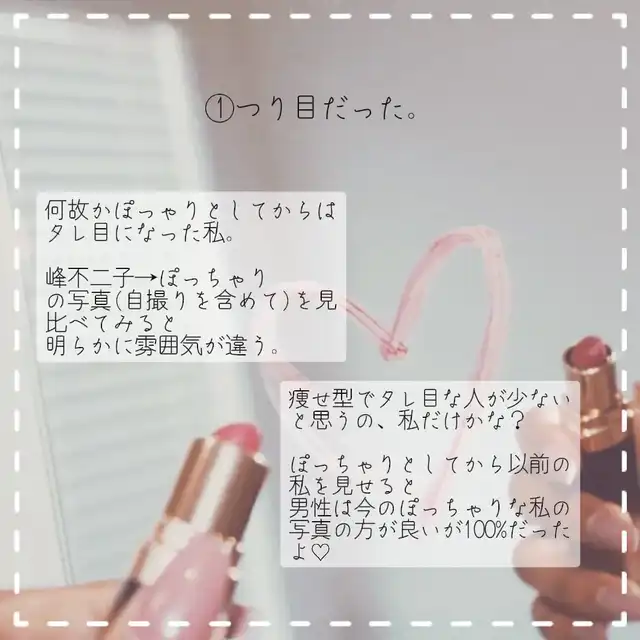 ①つり目だった。
何故かぽっちゃりとしてからは
タレ目になった私。
峰不二子→ぽっちゃり
の写真(自撮りを含めて)を見
比べてみると
明らかに雰囲気が違う。
痩せ型でタレ目な人が少ない
と思うの、私だけかな？
ぽっちゃりとしてから以前の
私を見せると
男性は今のぽっちゃりな私の
写真の方が良いが100%だった
よ♡